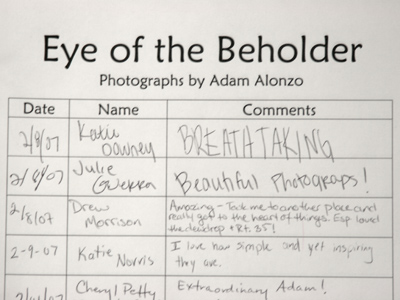 Eye of the Beholder
Photographs by Adam Alonzo
Date Name Comments
2/8/07 Katie Downey BREATHTAKING
2/8/07 Julie Beautiful Photograps!
2/8/07 Drew Morrison Amazing - Took me to another place and
really got to the heart of things. Esp loved
the dewdrop + Rt. 35!
2-9-07 Katie Norris I love how simple and yet inspiring
they are.
Cheryl Petty Extraordinary Adam!